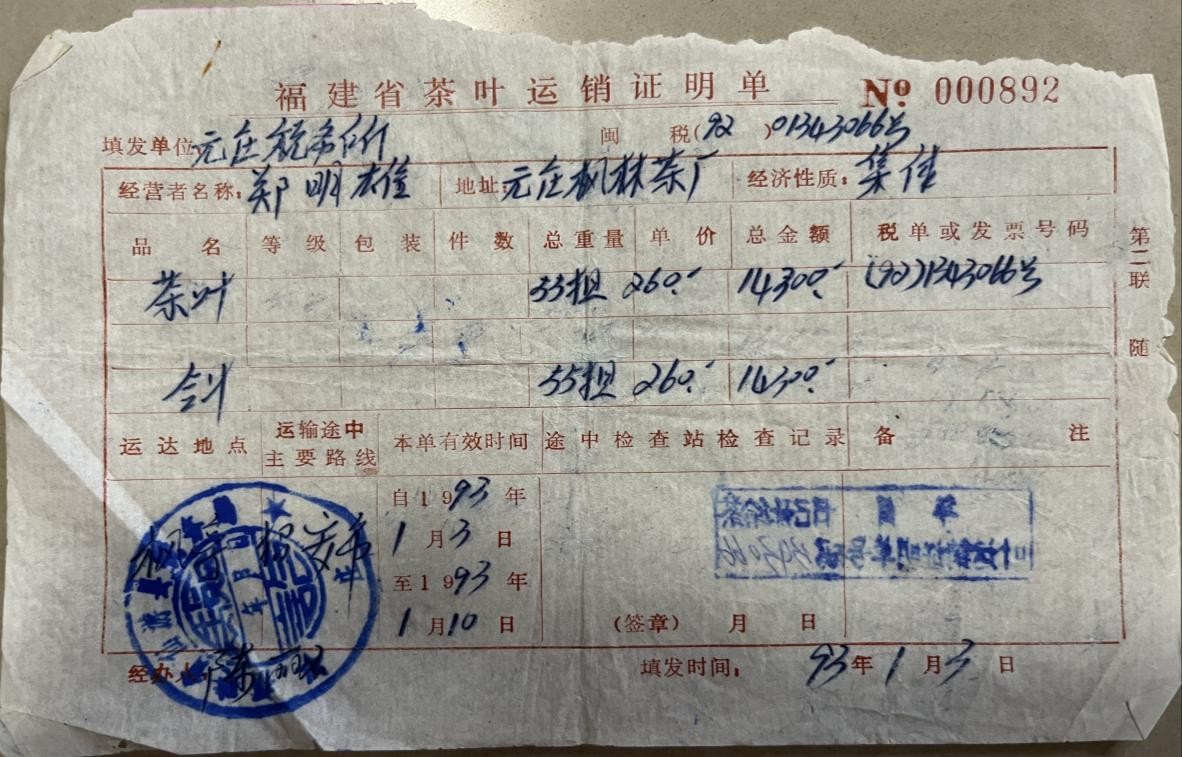 福建省茶叶运销证明单 № 000892
填发单位: 元庄税务所 闽 税(92 )01343066号
经营者名称: 郑明 地址: 元庄枫林茶厂 经济性质: 集体
品名 等级 包装 件数 总重量 单价 总金额 税单或发票号码
茶叶 55担 260.- 14300.- (92)1343066号
合计 55担 260.- 14300.-
运达地点 运输途中主要路线 本单有效时间 途中检查站检查记录 备注
自1993年
1月3日
至1993年
1月10日
(签章) 月 日
经办人: 陈 填发时间: 93年1月3日
第二联 随